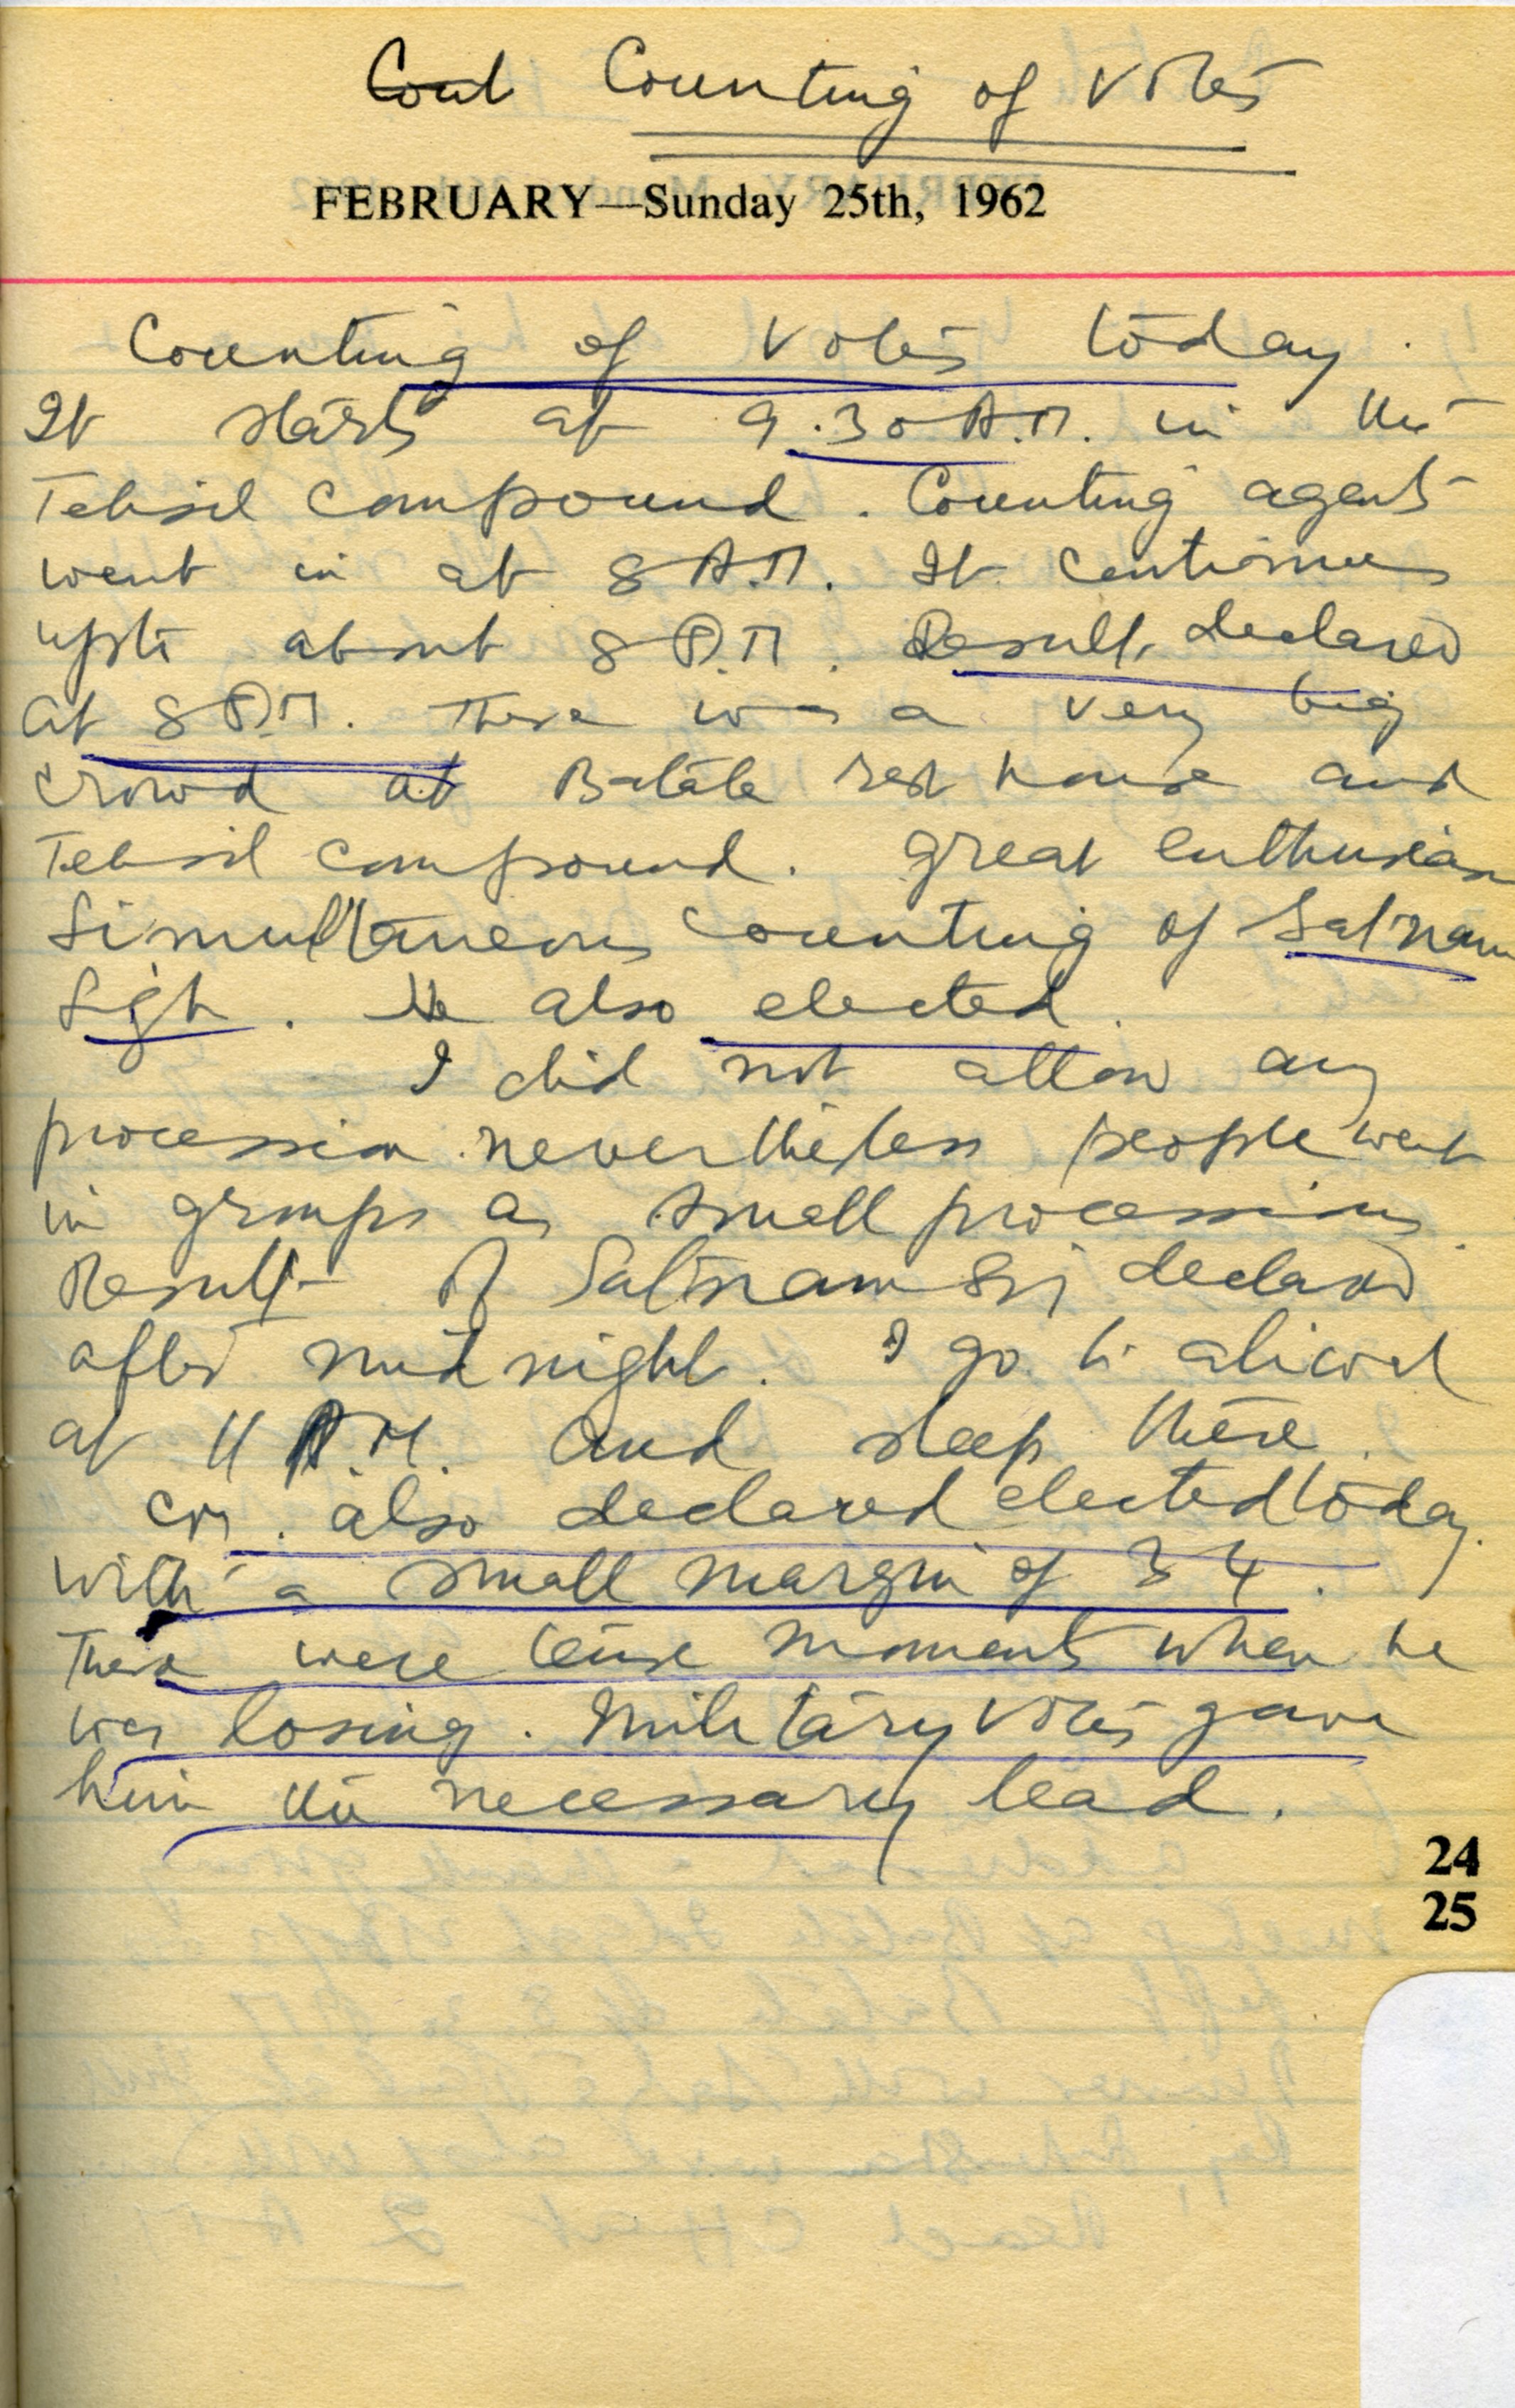 Counting of Votes
FEBRUARY—Sunday 25th, 1962
Counting of Votes today.
It starts at 9.30 A.M. in the
Tehsil compound. Counting agents
went in at 8 A.M. It continues
upto about 8 P.M. Result declared
at 8 P.M. There was a very big
crowd at Batala rest house and
Tehsil compound. great enthusiasm
Simultaneous counting of Satnam
Sigh. He also elected.
I did not allow any
procession. nevertheless people went
in groups as small processions.
Result of Satnam declared
after mid night. I go to aliwal
at 11 P.M. and sleep there.
CM. also declared elected today.
with a small margin of 34.
There were tense moments when he
was losing. Military votes gave
him the necessary lead.
24
25